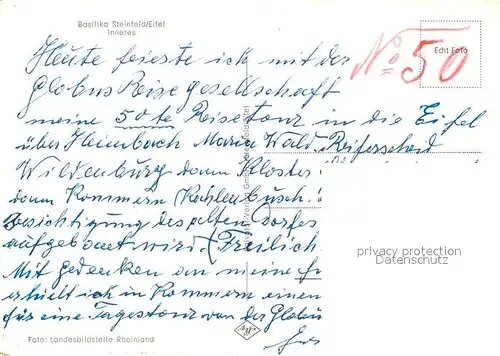 Basilika Steinfeld/Eifel
Inneres
Echt Foto
No 50
Heute feierte ich mit der
Globus Reisegesellschaft
meine 50te Reisetour in die Eifel
über Heimbach Maria Wald. Reiferscheid
Wildenburg dann Kloster
dann Kommern Kahlenbusch.
Besichtigung des alten Dorfes
aufgebaut wird. (Freilich
Mit gedenken an meine
erhielt ich in Kommern einen
für eine Tagestour von der Globus
privacy protection
Datenschutz
Foto: Landesbildstelle Rheinland